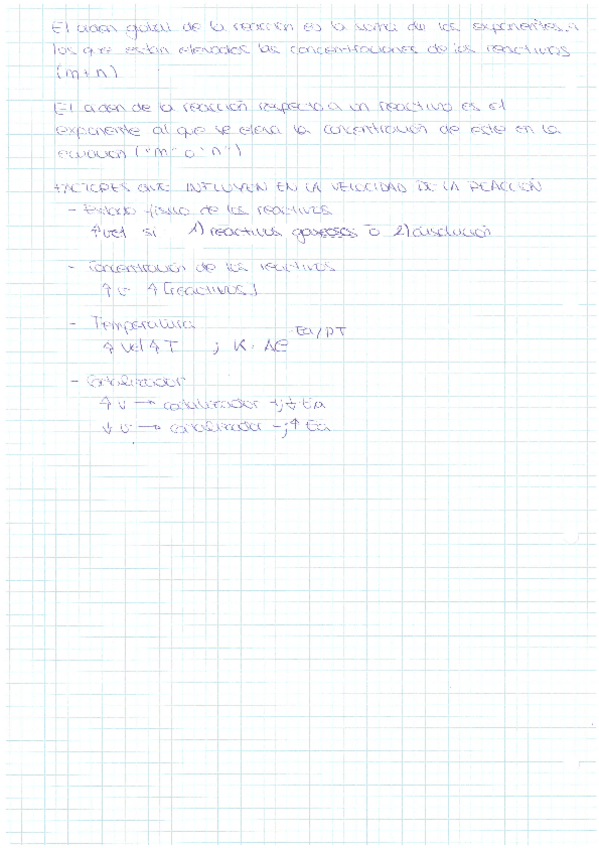 El orden global de la reacción es la suma de los exponentes a
los que están elevadas las concentraciones de los reactivos
(m+n)
El orden de la reacción respecto a un reactivo es el
exponente al que se eleva la concentración de este en la
ecuación ("m" o "n")
FACTORES QUE INFLUYEN EN LA VELOCIDAD DE LA REACCIÓN
- Estado físico de los reactivos
↑vel si 1) reactivos gaseosos o 2) disolución
- Concentración de los reactivos
↑ v ↑ [reactivos]
- Temperatura
↑ vel ↑ T ; K = Ae^Ea/RT
- Catalizador
↑ v → catalizador +; ↓ Ea
↓ v → catalizador -; ↑ Ea